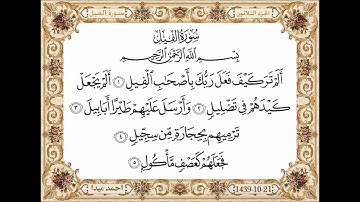 سورة الفيل
الجزء الثلاثين
سُورَةُ الفِيلِ
بِسْمِ اللَّهِ الرَّحْمَٰنِ الرَّحِيمِ
أَلَمْ تَرَ كَيْفَ فَعَلَ رَبُّكَ بِأَصْحَابِ الْفِيلِ ١ أَلَمْ يَجْعَلْ
كَيْدَهُمْ فِي تَضْلِيلٍ ٢ وَأَرْسَلَ عَلَيْهِمْ طَيْرًا أَبَابِيلَ ٣
تَرْمِيهِم بِحِجَارَةٍ مِّن سِجِّيلٍ ٤
فَجَعَلَهُمْ كَعَصْفٍ مَّأْكُولٍ ٥
احمد ميدا
1439-10-21